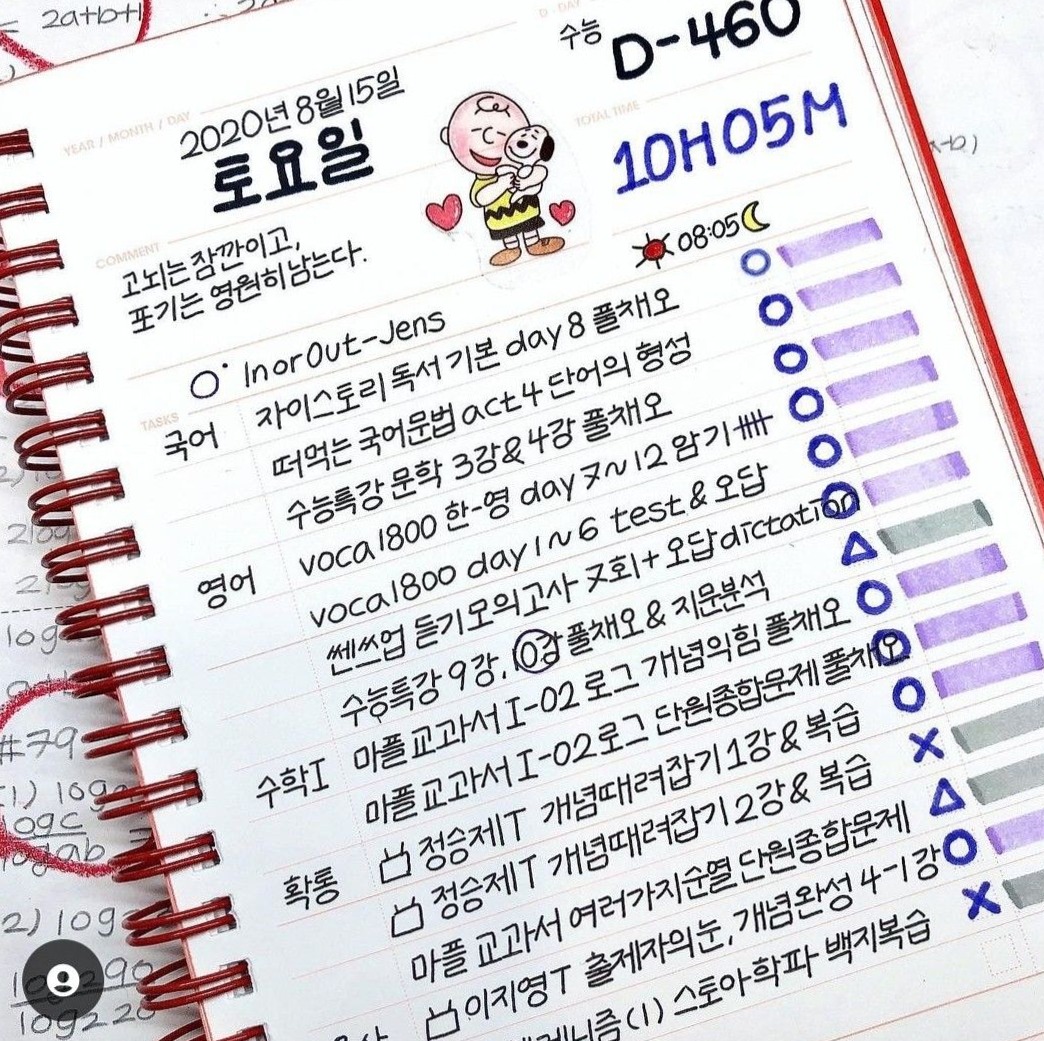 2a+b+1
D-DAY
수능 D-460
YEAR / MONTH / DAY
2020년 8월 15일
토요일
TOTAL TIME
10H 05M
COMMENT
고뇌는 잠깐이고,
포기는 영원히 남는다.
08:05
In or Out-Jens
TASKS
국어 자이스토리 독서 기본 day 8 풀채오
떠먹는 국어문법 act4 단어의 형성
수능특강 문학 3강 & 4강 풀채오
영어 voca1800 한-영 day 7~12 암기
voca1800 day 1~6 test & 오답
쎈쓰업 듣기모의고사 7회 + 오답 dictation
수능특강 9강, 10강 풀채오 & 지문분석
수학I 마플교과서 I-02 로그 개념익힘 풀채오
마플교과서 I-02 로그 단원종합문제 풀채오
정승제T 개념때려잡기 1강 & 복습
확통 정승제T 개념때려잡기 2강 & 복습
마플 교과서 여러가지순열 단원종합문제
이지영T 출제자의눈, 개념완성 4-1강
(1) 스토아학파 백지복습
#79